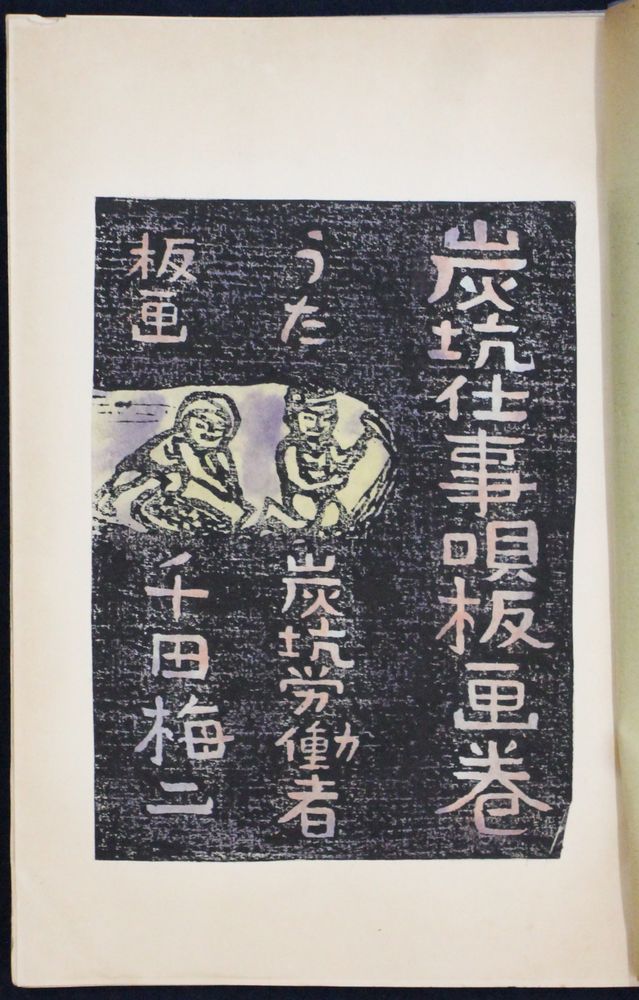 炭坑仕事唄板画巻
うた 炭坑労働者
板画 千田梅二